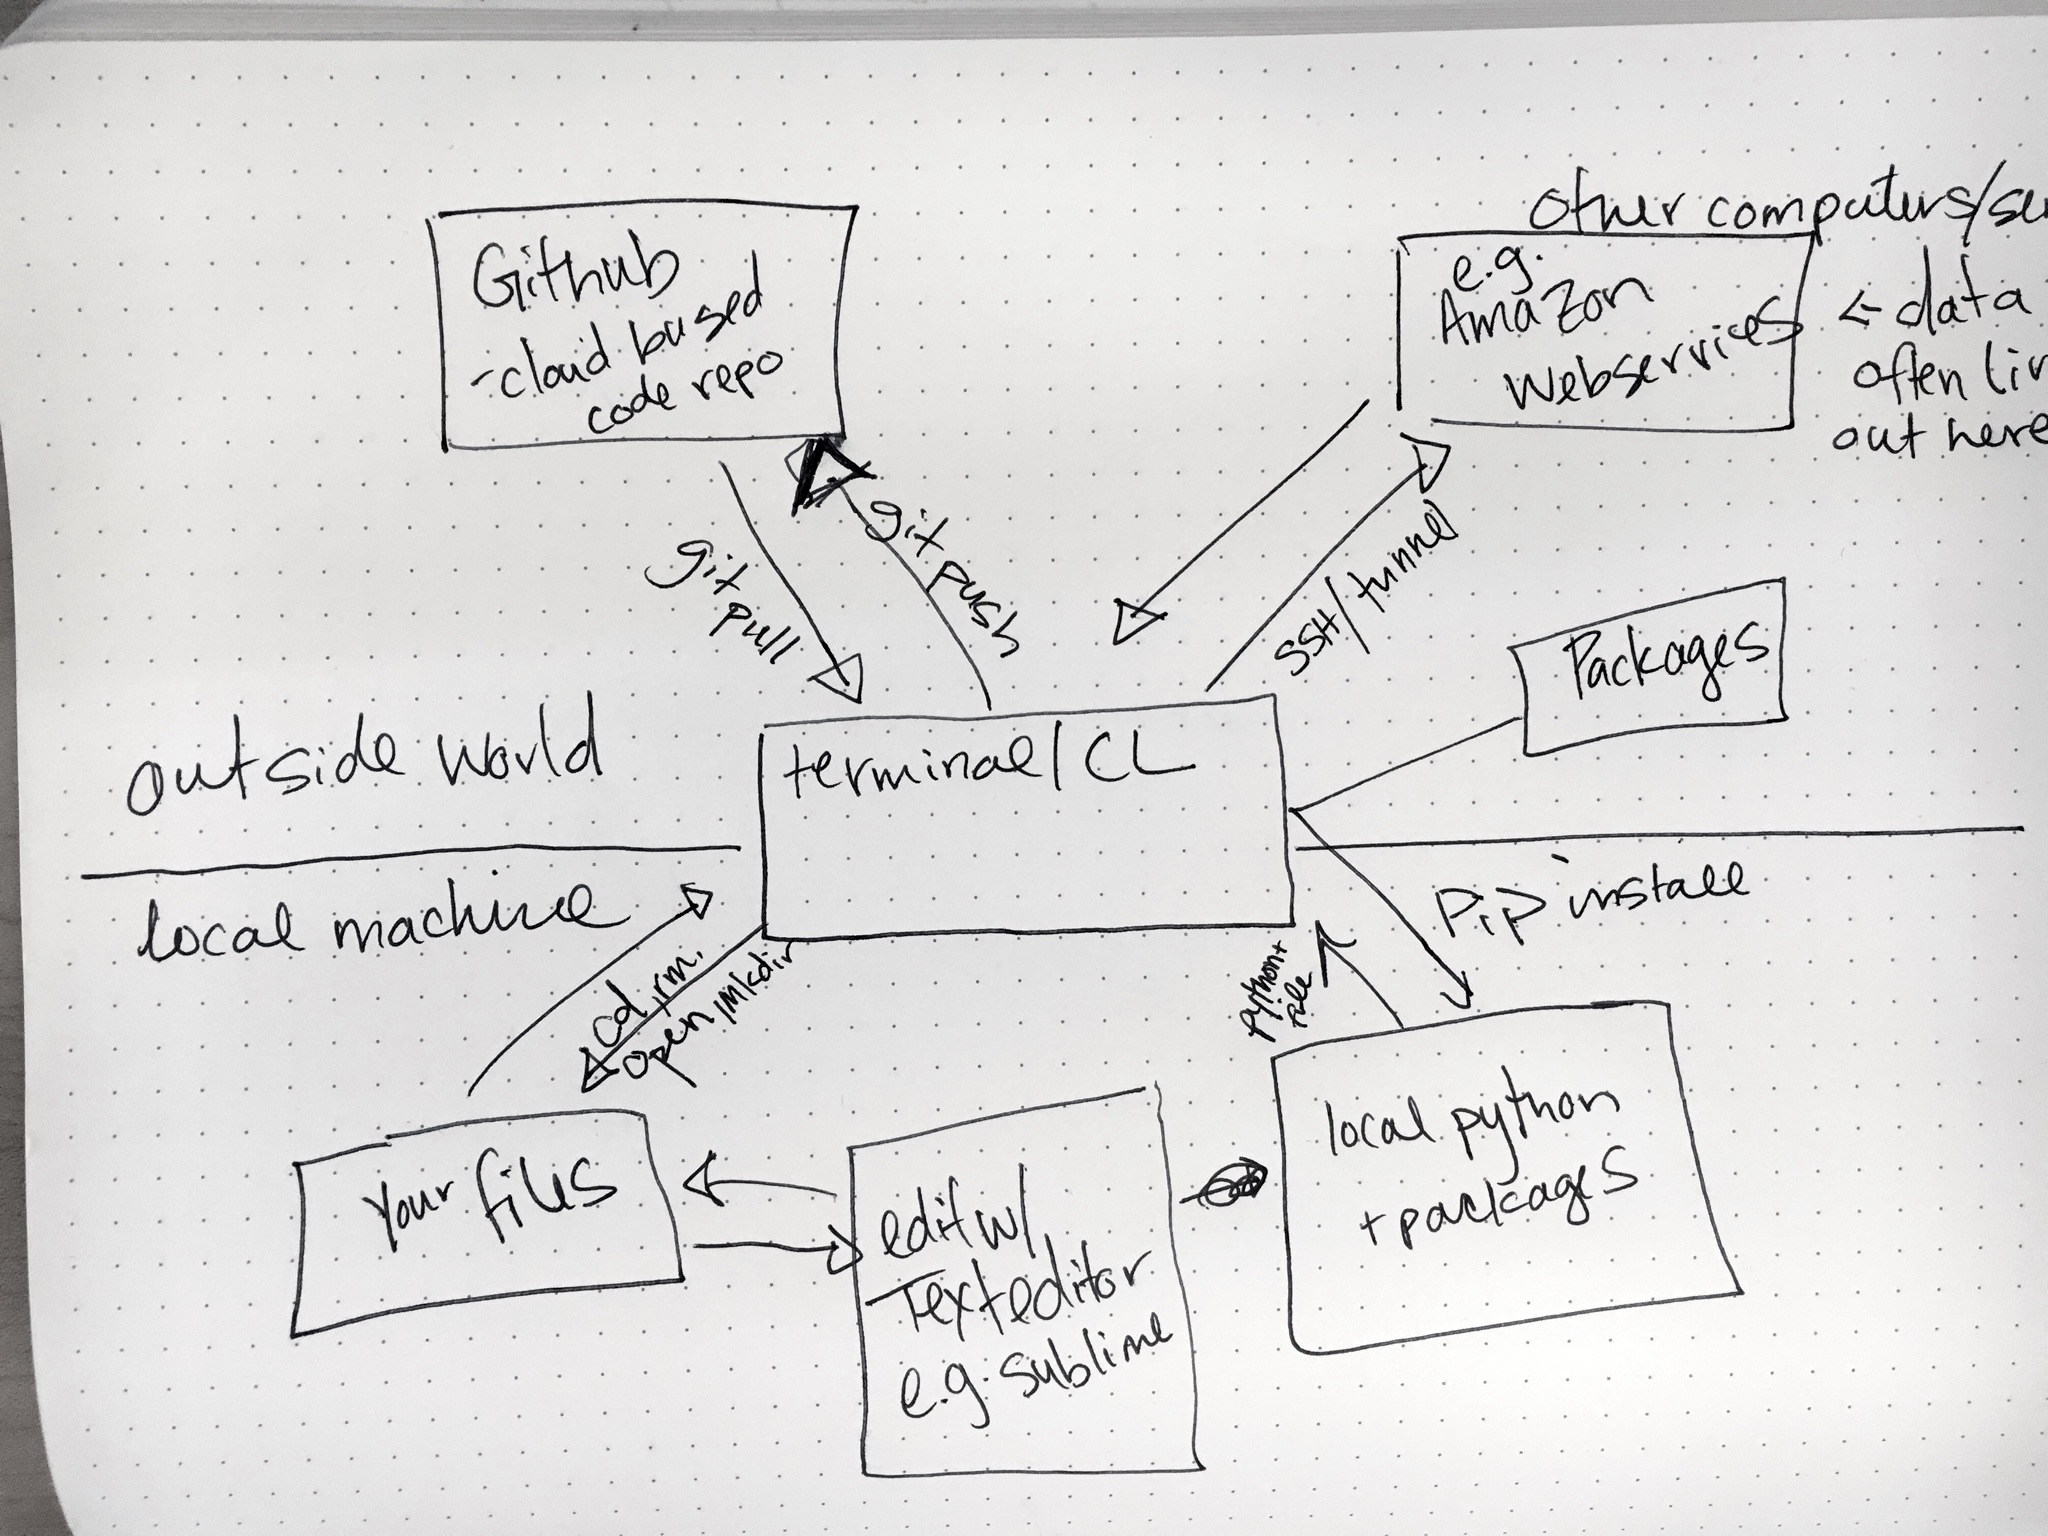 Github
-cloud based
code repo
other computers/se
e.g.
Amazon
Webservices
← data
often liv
out here
git
pull
git
push
SSH/tunnel
Packages
outside world
terminal/CL
local machine
Pip install
cd, rm,
open, mkdir
python+
file
Your files
edit w/
Text editor
e.g. sublime
local python
+ packages